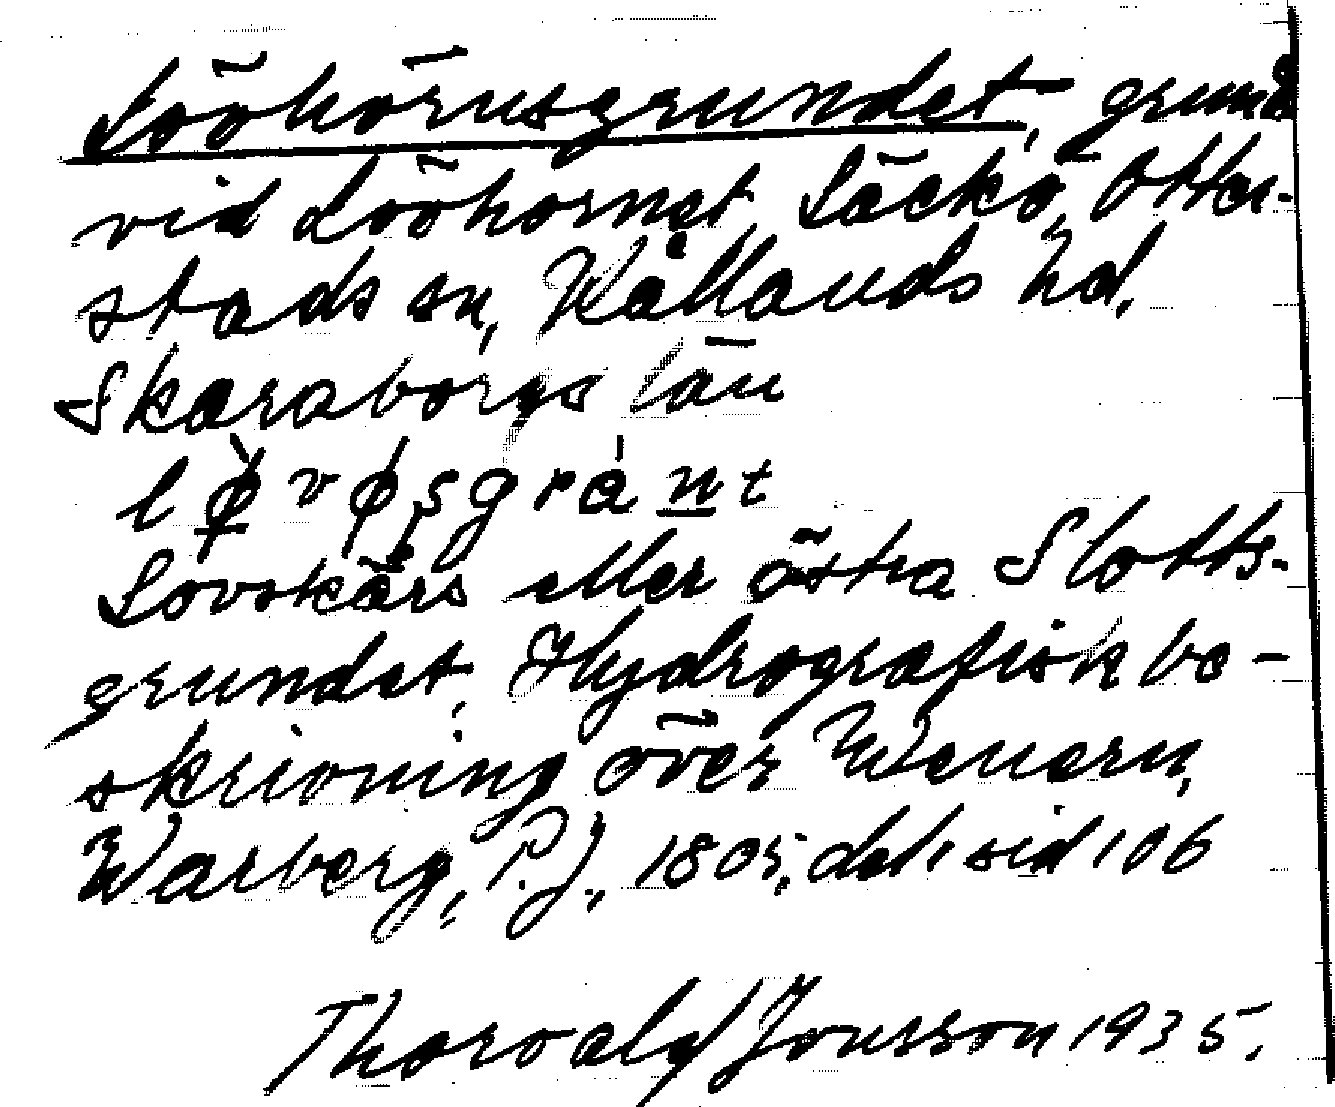 Lovöhörnsgrundet, grund
vid Lovöhornet, Läckö, Otter-
stads sn, Kållands hd.
Skaraborgs län
Lovskärs eller östra Slotts-
grundet. Hydrografisk be-
skrivning över Wenern,
Warberg, P.J., 1805, del 1 sid 106
Thorvald Jonsson 1935.